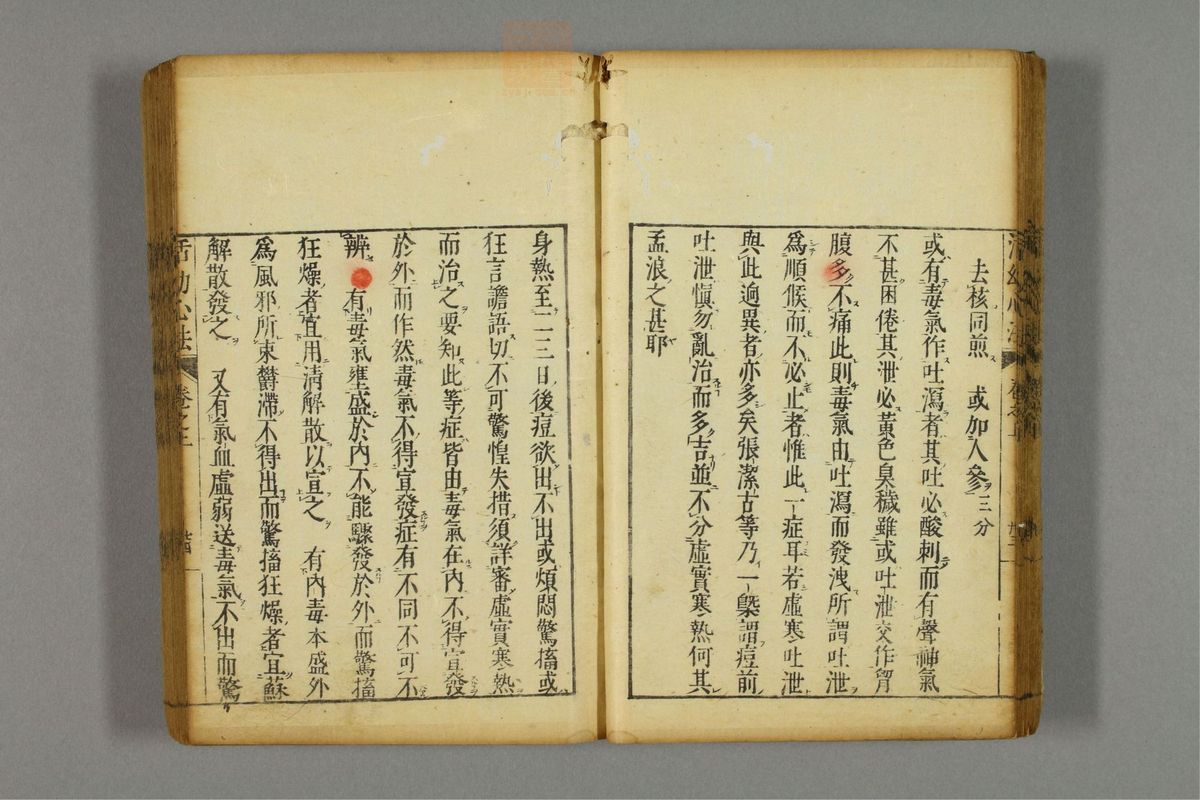 去核同煎　或加人參三分
或有毒氣作吐瀉者其吐必酸刺而有聲神氣
不甚困倦其泄必黃色臭穢雖或吐泄交作胷
腹多不痛此則毒氣由吐瀉而發洩所謂吐泄
爲順候而不必止者惟此一症耳若虛寒吐泄
與此逈異者亦多矣張潔古等乃一槩謂痘前
吐泄愼勿亂治而多吉並不分虛實寒熱何其
孟浪之甚耶
身熱至二三日後痘欲出不出或煩悶驚搐或
狂言譫語切不可驚惶失措須詳審虛實寒熱
而治之要知此等症皆由毒氣在內不得宣發
於外而作然毒氣不得宣發症有不同不可不
辨　有毒氣壅盛於內不能驟發於外而驚搐
狂燥者宜用淸解散以宣之　有內毒本盛外
爲風邪所束欝滯不得出而驚搐狂燥者宜蘇
解散發之　又有氣血虛弱送毒氣不出而驚
活幼心法　卷之上